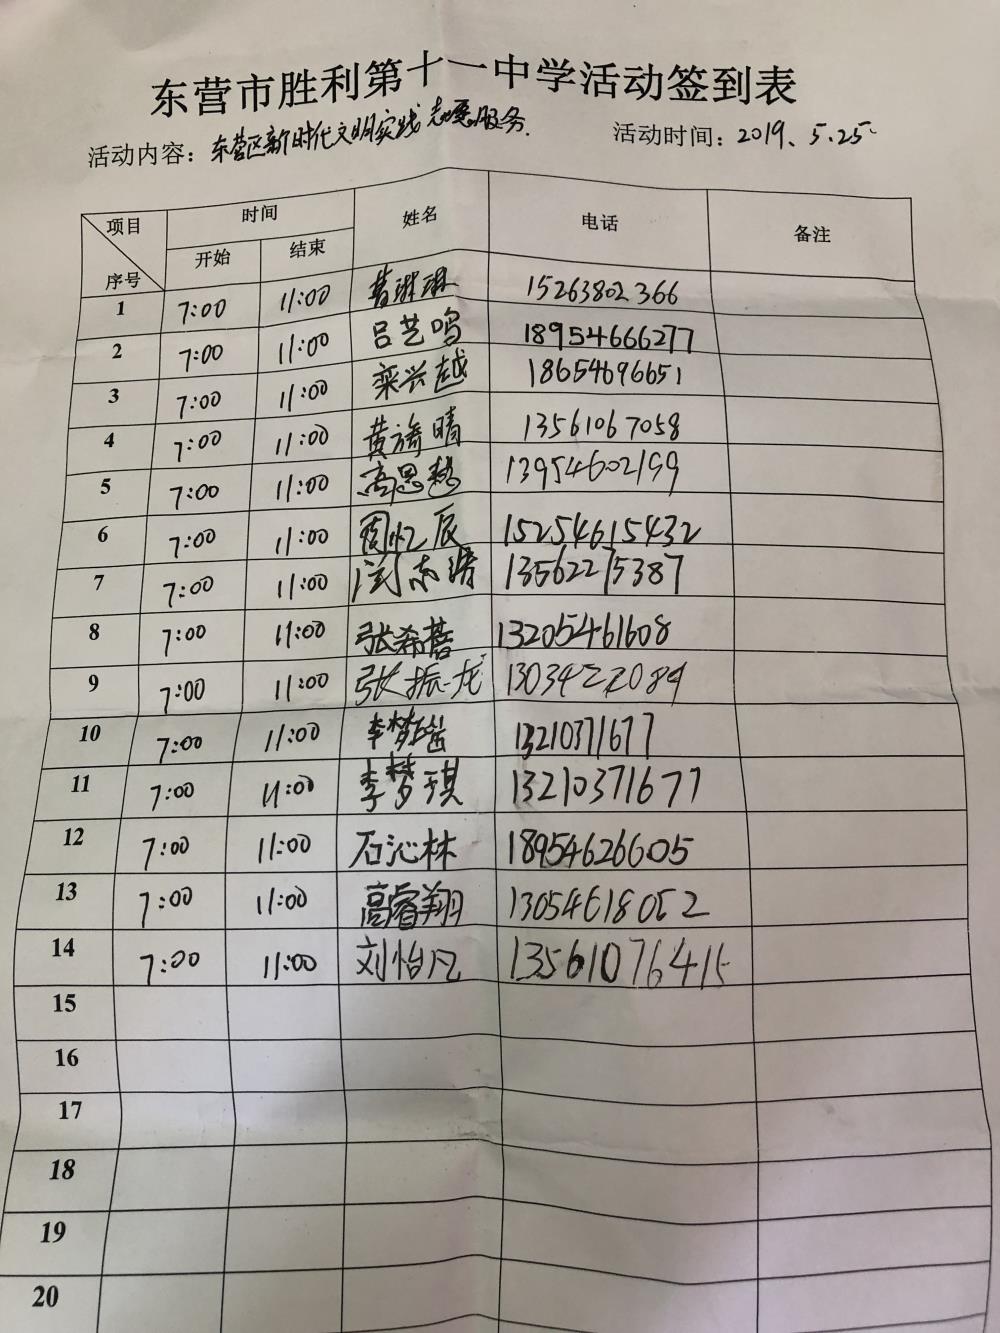 东营市胜利第十一中学活动签到表
活动内容：东营区新时代文明实践志愿服务. 活动时间：2019.5.25
项目 时间 姓名 电话 备注
序号 开始 结束
1 7:00 11:00 曹琳琳 15263802366
2 7:00 11:00 吕艺鸣 18954666277
3 7:00 11:00 栾兴越 18654696651
4 7:00 11:00 黄 晴 13561067058
5 7:00 11:00 高思 13954602199
6 7:00 11:00 周忆辰 15254615432
7 7:00 11:00 13562275387
8 7:00 11:00 张希蕾 13205461608
9 7:00 11:00 张振龙 13034522084
10 7:00 11:00 李梦 13210371677
11 7:00 11:00 李梦琪 13210371677
12 7:00 11:00 石沁林 18954626605
13 7:00 11:00 高睿翔 13054618052
14 7:00 11:00 刘怡凡 13561076415
15
16
17
18
19
20